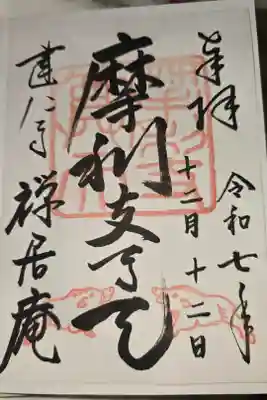 奉拝
令和七年
十二月十二日
摩利支尊天
建仁寺
禅居庵